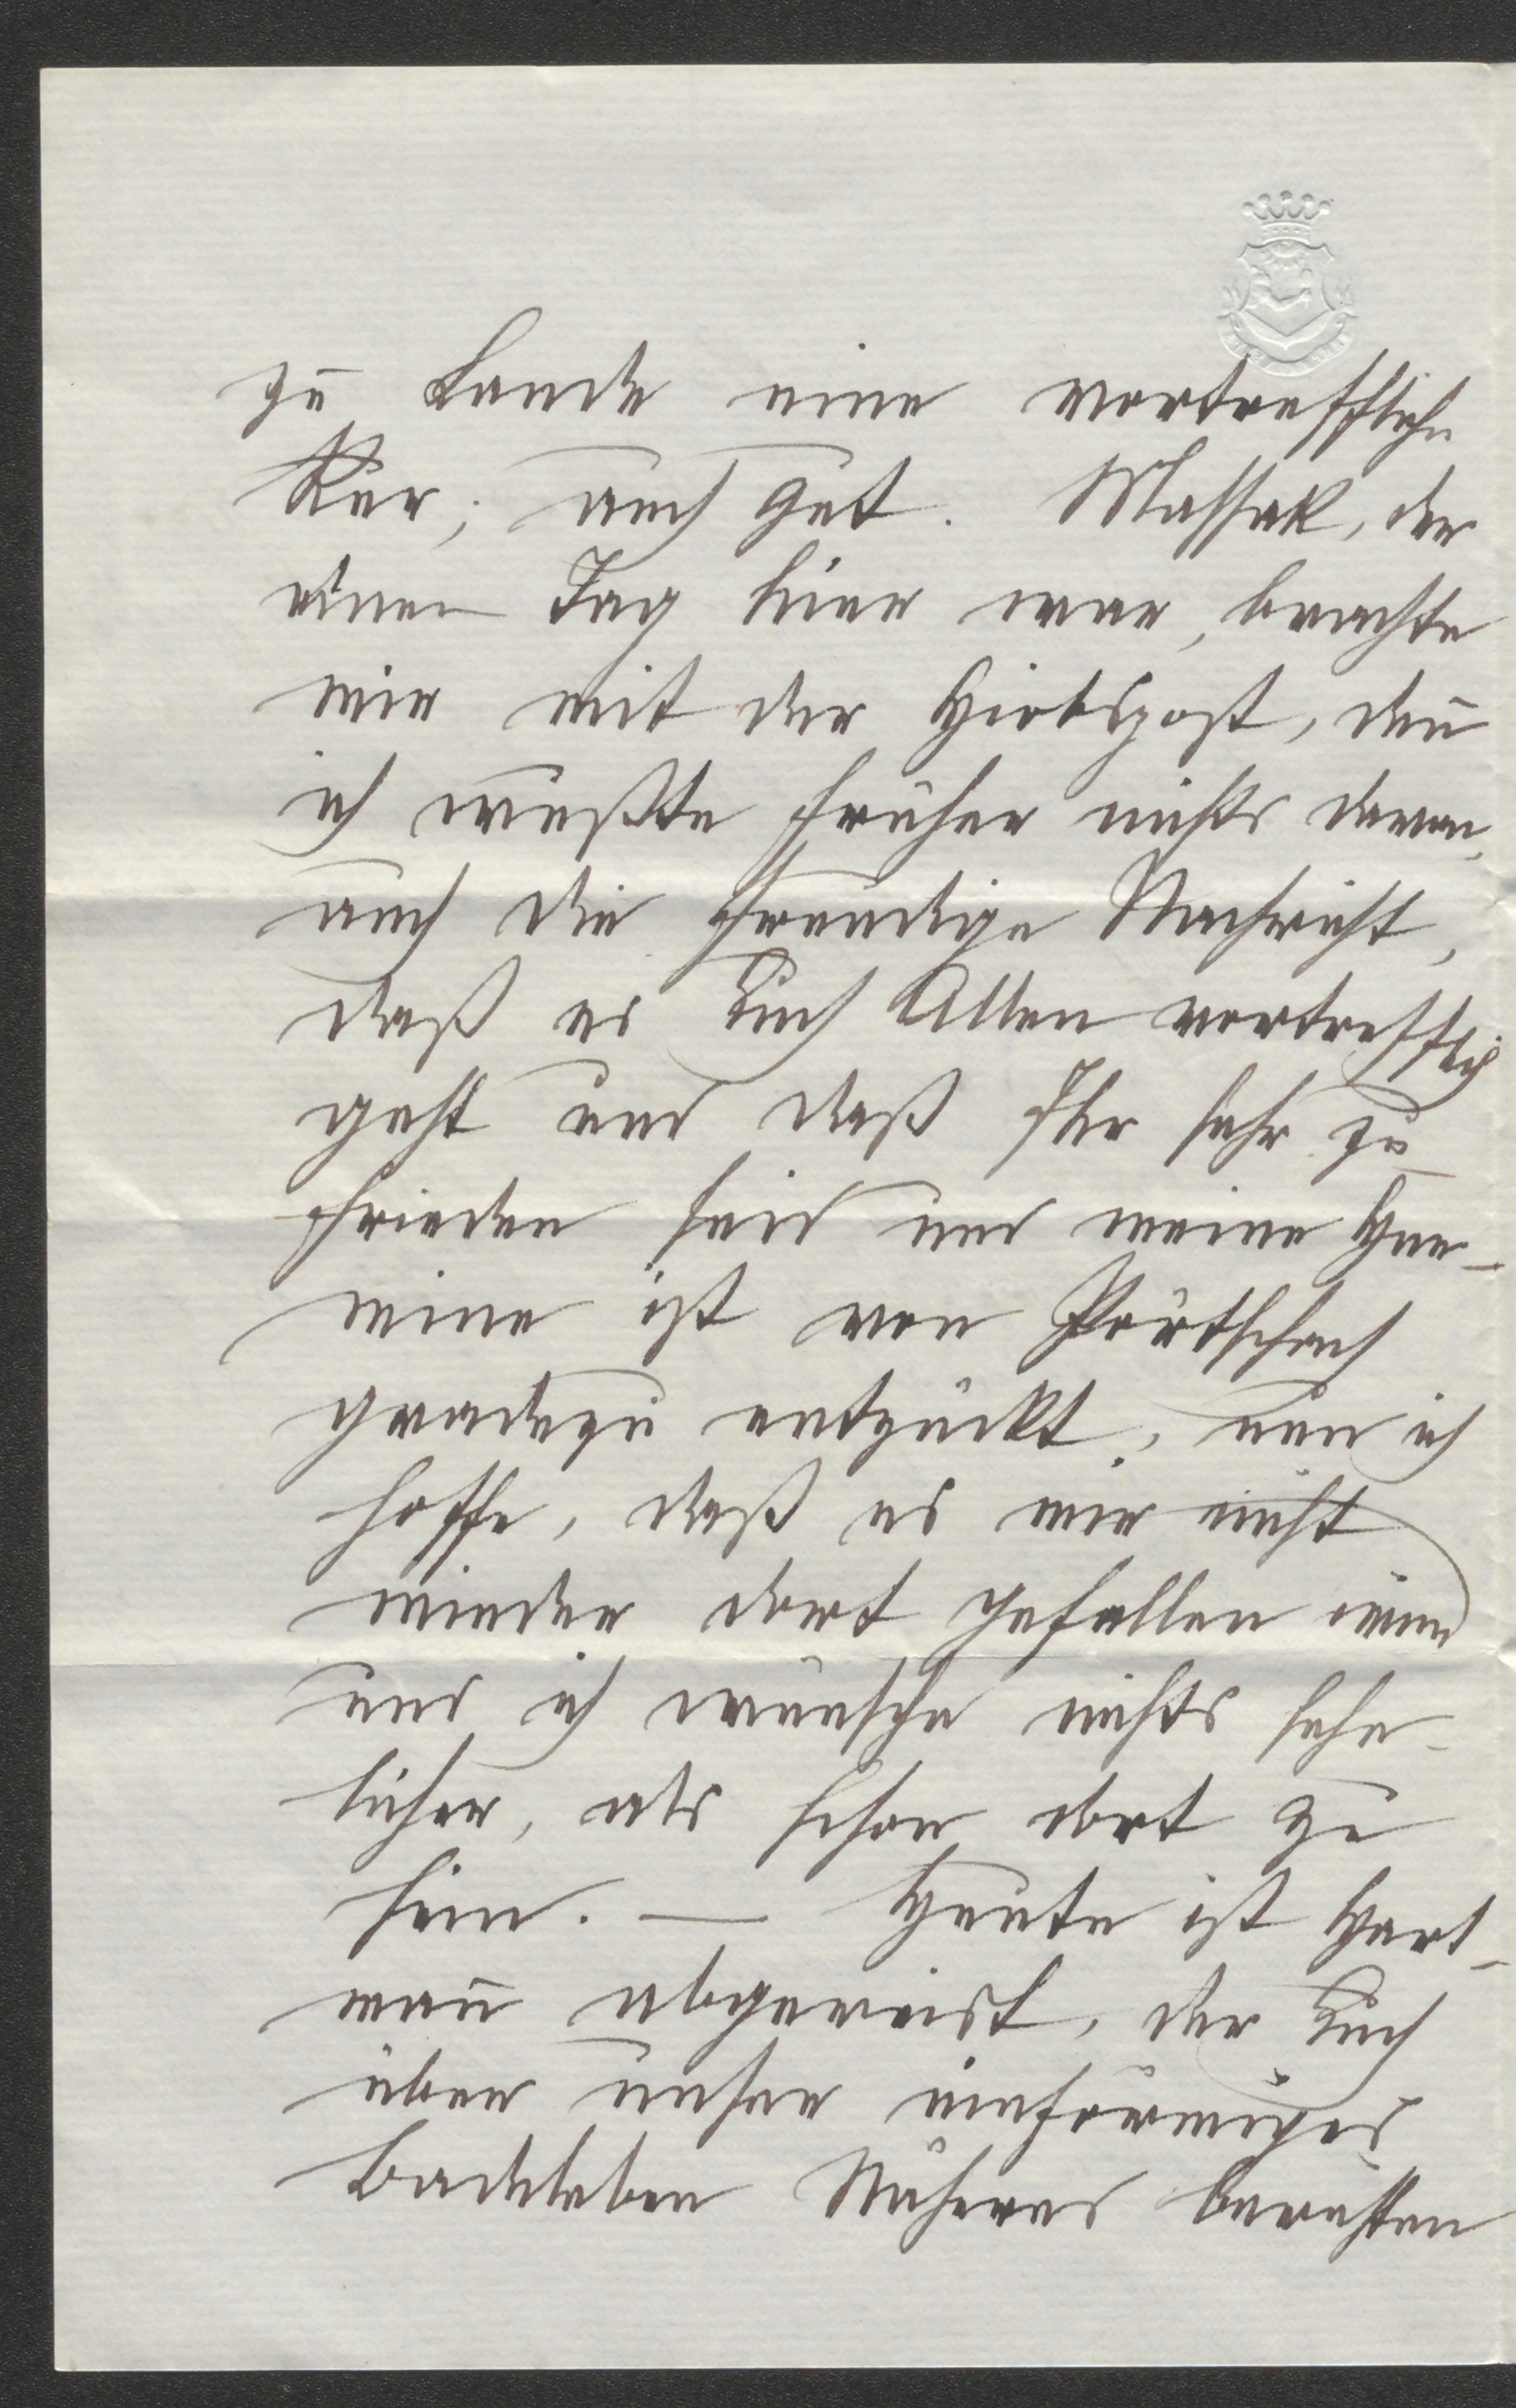 zu Lande eine vortreffliche
Kur; auch gut. Massak, der
einen Tag hier war, brachte
mir mit der Hiobspost, den̄
ich wußte früher nichts davon,
auch die freudige Nachricht,
daß es Euch Allen vortrefflich
geht und daß Ihr sehr zu-
frieden seid und meine Her-
mine ist von Pörtschach
gradezu entzückt, nun ich
hoffe, daß es mir nicht
minder dort gefallen wird
und ich wünsche nichts sehn-
licher, als schon dort zu
sein. — Heute ist Hart-
man̄ abgereist, der Euch
über unser einförmiges
Badeleben Näheres berichten